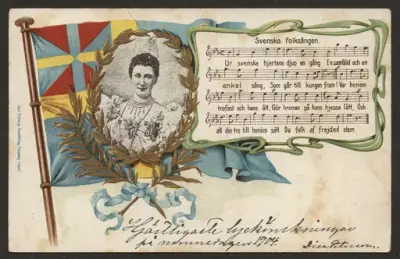 Svenska folksången.
Ur svenska hjertans djup en gång En samfäld och en
enkel sång, Som går till kungen fram! Var honom
trofast och hans ätt, Gör kronan på hans hjessa lätt, Och
all din tro till honom sätt Du folk af frejdad stam.
Hjärtligaste lyckönskningar
på namnsdagen 1904.